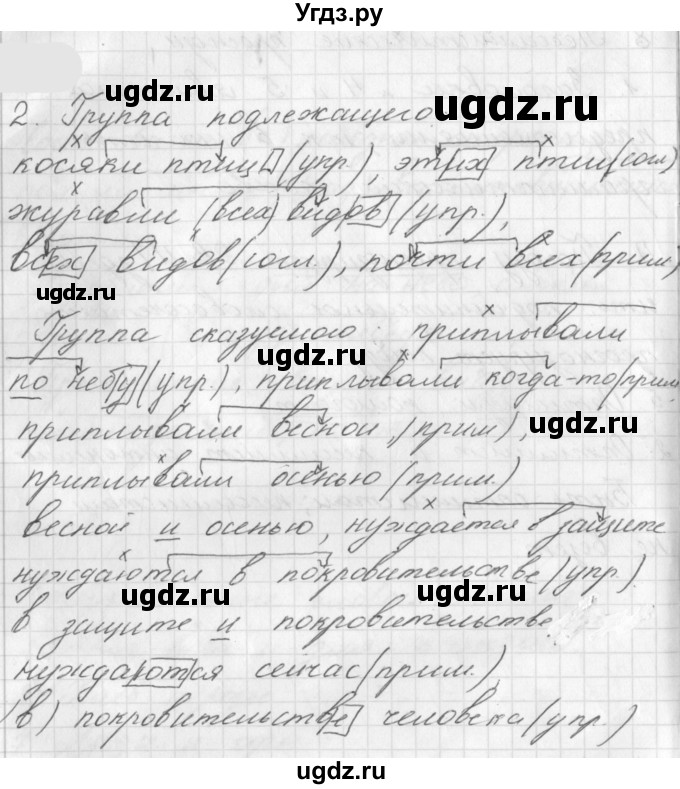 Угдз.ру
2. Группа подлежащего
косяки птиц (упр.), этих птиц (согл)
журавли (всех) видов (упр.),
всех видов (согл.), почти всех (прим)
Группа сказуемого: приплывали
по небу (упр.), приплывали когда-то (прим
приплывали весной, (прим),
приплывали осенью (прим.)
весной и осенью, нуждается в защите
нуждаются в покровительстве (упр.)
в защите и покровительстве
нуждаются сейчас (прим.),
(в) покровительстве человека (упр.)
ugdz.ru
ugdz.ru
ugdz.ru
ugdz.ru
ugdz.ru
ugdz.ru
ugdz.ru
ugdz.ru
ugdz.ru
ugdz.ru
ugdz.ru
ugdz.ru
ugdz.ru